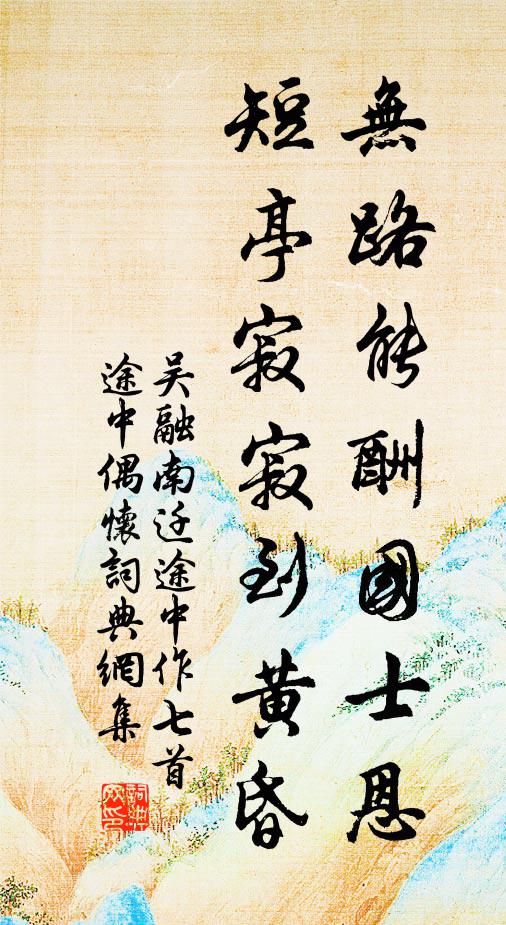 無路能酬國士恩
短亭寂寂到黃昏
吴融南迁途中作七首
途中偶懷詞典網集